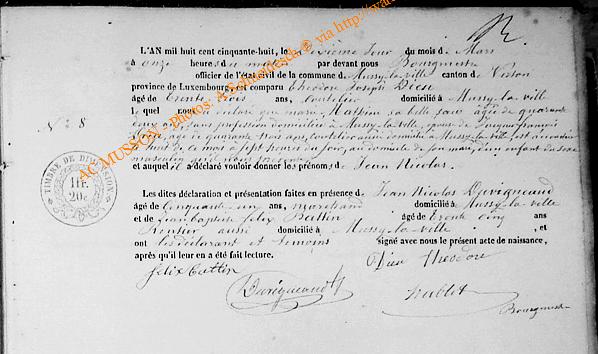 L'AN mil huit cent cinquante-huit, le jour du mois de Mars
à onze heures du matin par devant nous Bourgmestre
officier de l'état civil de la commune de Mussy-la-ville canton de Virton
province de Luxembourg, est comparu Théodore Joseph Dieu
âgé de trente trois ans, domicilié à Mussy-la-ville
lequel nous a déclaré que marie Mathieu sa belle sœur âgée de quarante
deux ans, sans profession domiciliée à Mussy-la-ville, épouse de
âgé de quarante trois ans, domicilié à Mussy-la-ville est accouchée
de ce mois à sept heures du soir, au domicile de son mari, d'un enfant du sexe
masculin qu'il nous présente
et auquel il a déclaré vouloir donner les prénoms de Jean Nicolas.
N° 8
TIMBRE DE DIMENSION
1 fr.
20 c.
Les dites déclaration et présentation faites en présence de Jean Nicolas Duvigneaud
âgé de Cinquante-un ans, marchand domicilié à Mussy-la-ville
et de Jean baptiste felix Cattin âgé de trente cinq ans
rentier aussi domicilié à Mussy-la-ville, et
ont les déclarant et témoins signé avec nous le présent acte de naissance,
après qu'il leur en a été fait lecture.
felix Cattin
Duvigneaud
Dieu théodore
Bourgmestre
AC MUSSON - Photos: A.Schmidtesch © via http://